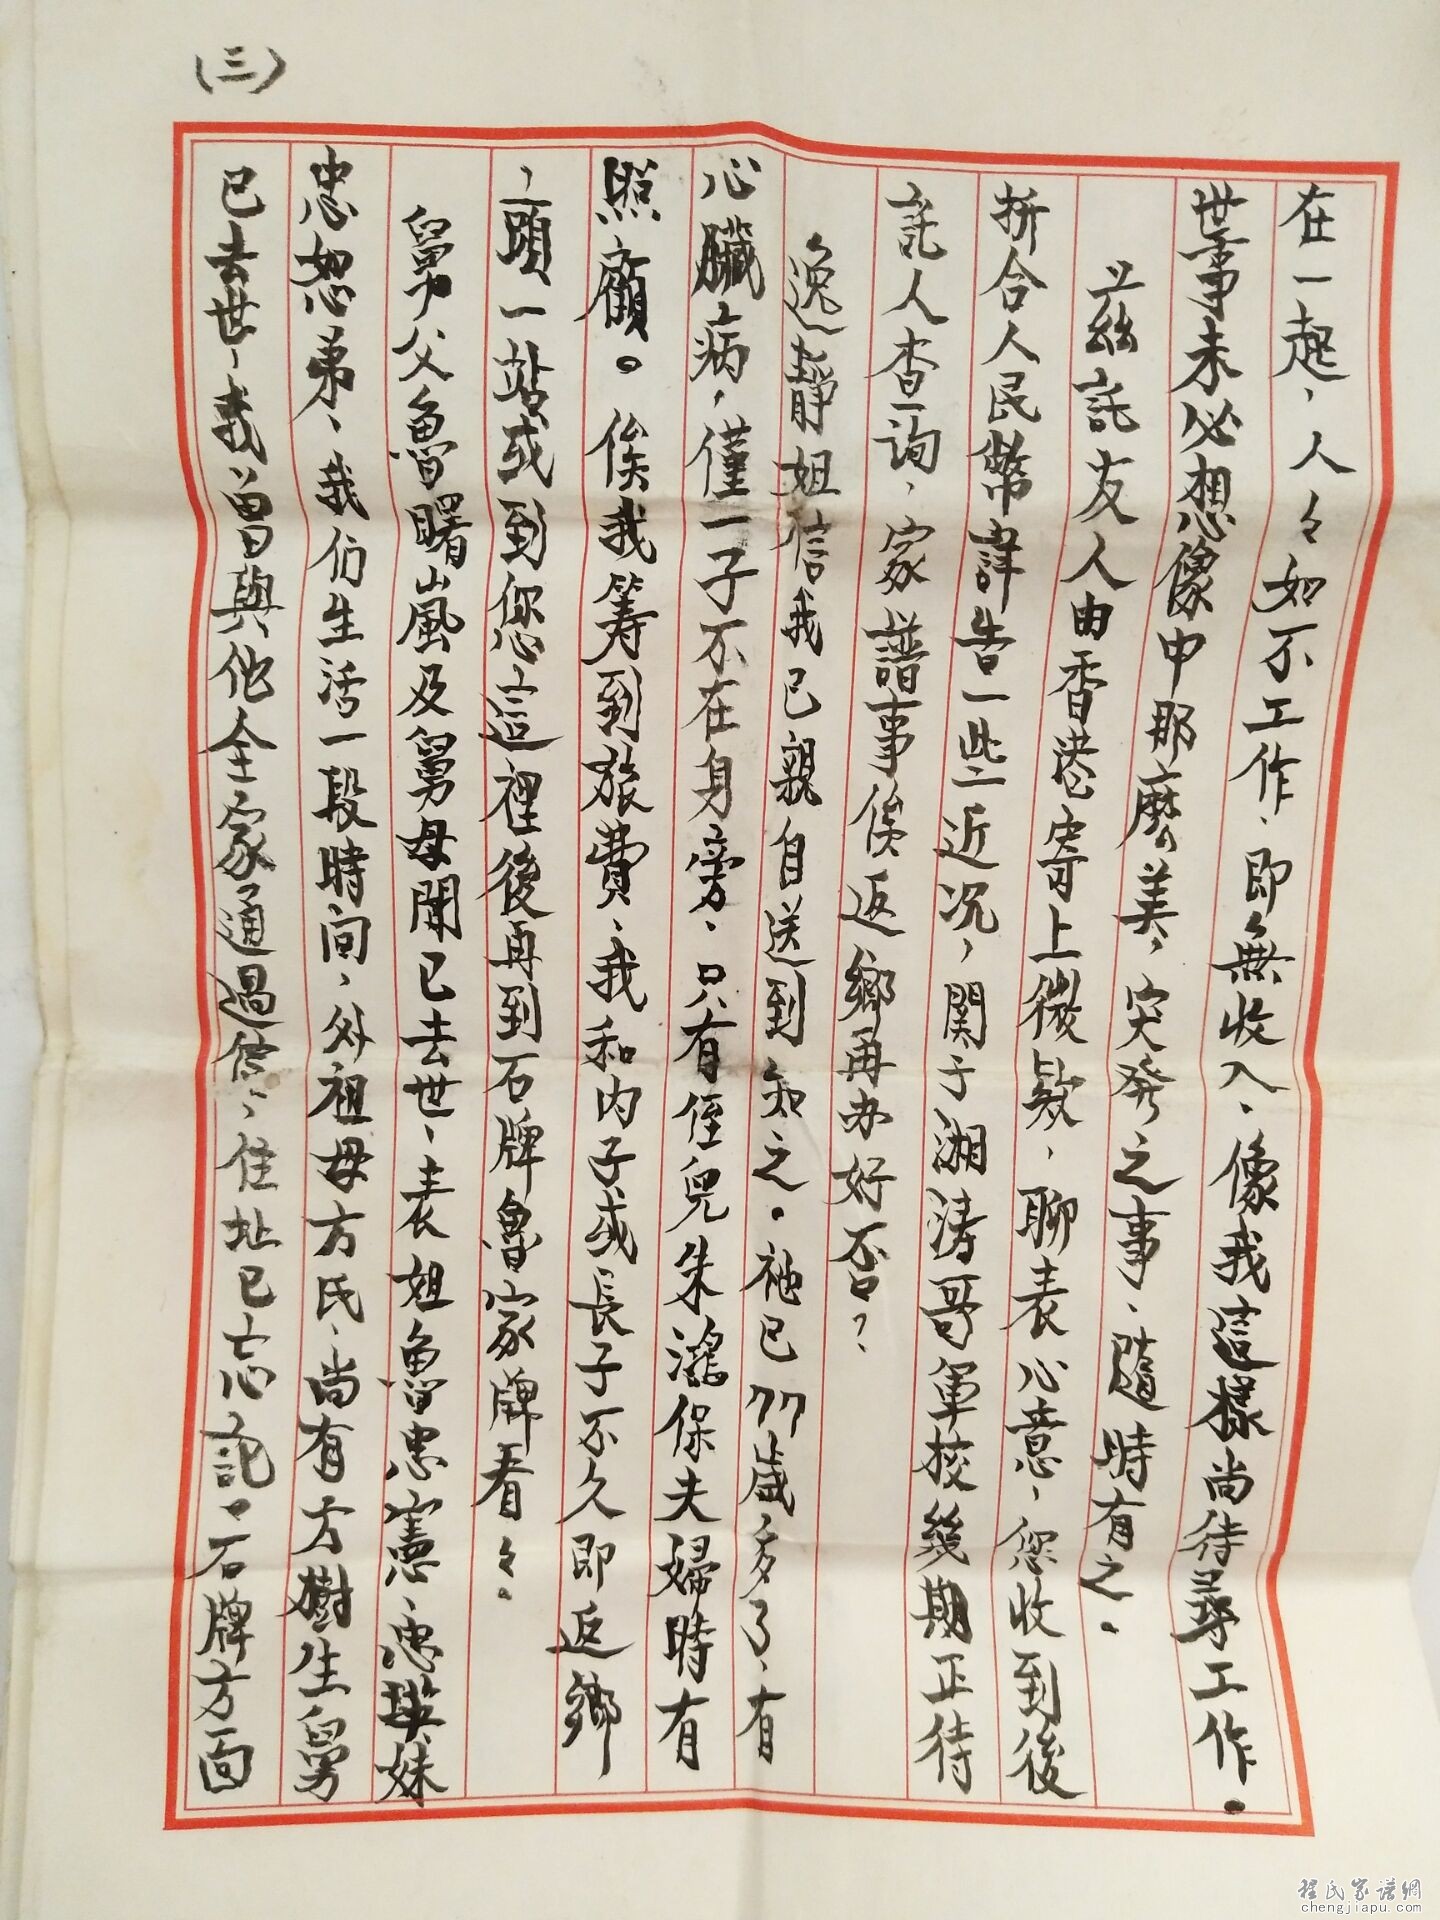 (三)
在一起，人々如不工作、即無收入，像我這樣尚待尋工作。
世事未必想像中那麼美，突發之事、隨時有之。
兹託友人由香港寄上微款，聊表心意，您收到後
折合人民幣詳告一些近况，関于湘涛哥軍校幾期正待
託人查詢，家譜事俟返鄉再办好否？
逸靜姐信我已親自送到知之。她已77歲多了、有
心臟病，僅一子不在身旁，只有侄兒朱瀛保夫婦時有
照顧。俟我筹到旅費、我和内子或長子不久即返鄉
、頭一站或到您這裡後再到石牌魯家牌看々。
舅父魯曙嵐及舅母聞已去世，表姐魯忠憲、忠瑛妹
忠恕弟、我們生活一段時间，外祖母方氏、尚有方樹生舅
已去世，我曾與他全家通過信，住址已忘記。石牌方面
程氏家谱網
chengjiapu.com